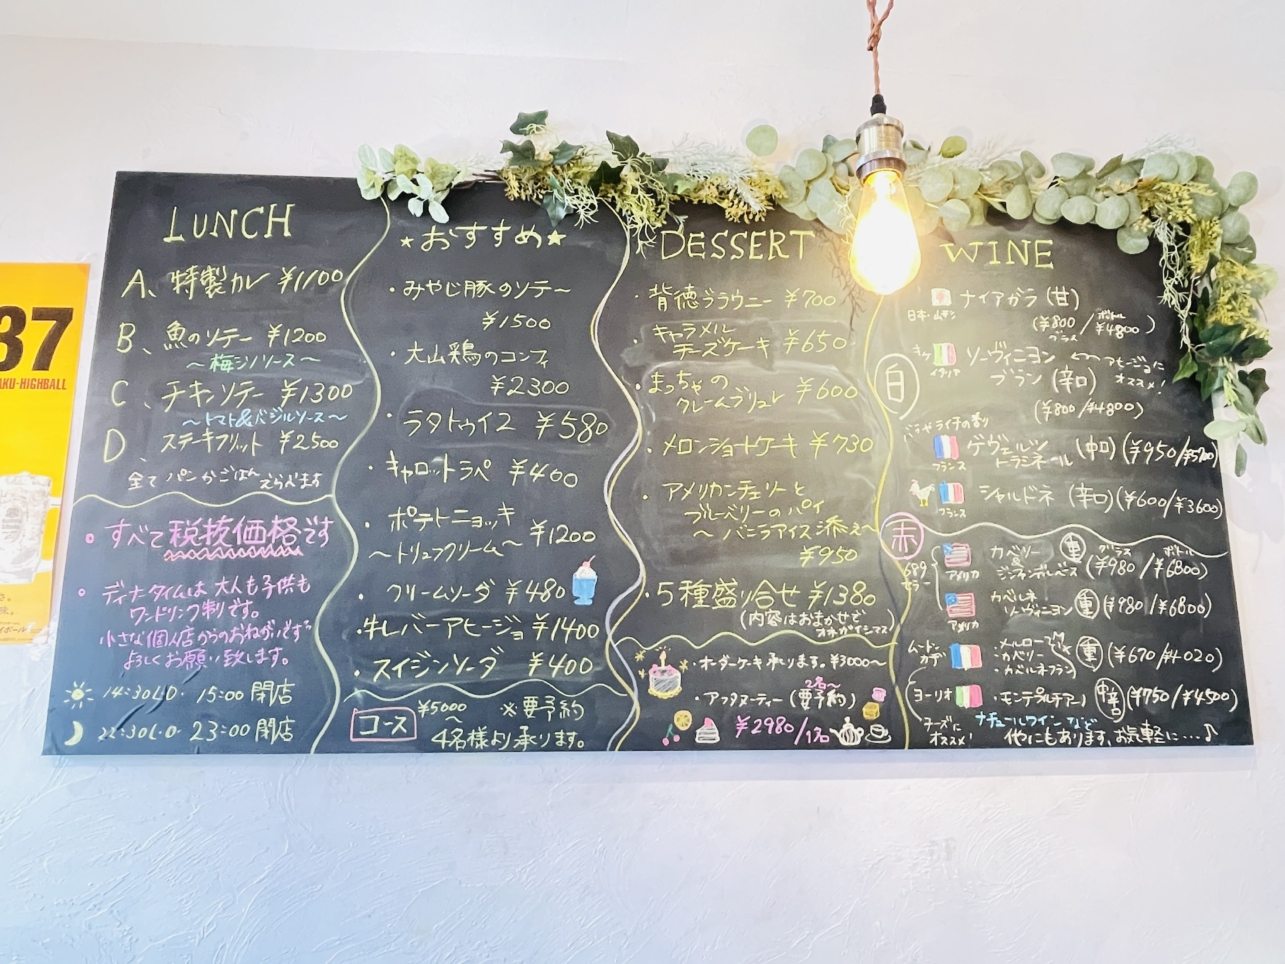 37
AKU-HIGHBALL
LUNCH
A、特製カレー ¥1100
B、魚のソテー ¥1200
〜梅シソソース〜
C、チキンソテー ¥1300
〜トマト&バジルソース〜
D ステーキフリット ¥2500
全て パンかごはん えらべます
すべて税抜価格です
ディナータイムは 大人も子供も
ワンドリンク制です。
小さな個人店からのおねがいです
よろしくお願い致します。
14:30L.O. 15:00 閉店
22:30L.O. 23:00 閉店
★おすすめ★
・みやじ豚のソテー
¥1500
・大山鶏のコンフィ
¥2300
・ラタトゥイユ ¥580
・キャロットラペ ¥400
・ポテトニョッキ
〜トリュフクリーム〜 ¥1200
・クリームソーダ ¥480
・牛レバーアヒージョ ¥1400
・スイジンソーダ ¥400
コース ¥5000〜 ※要予約
4名様より承ります。
DESSERT
・背徳ブラウニー ¥700
・キャラメル
チーズケーキ ¥650
・まっちゃの
クレームブリュレ ¥600
・メロンショートケーキ ¥730
・アメリカンチェリーと
ブルーベリーのパイ
〜バニラアイス添え〜
¥950
・5種盛り合せ ¥1380
(内容はおまかせで
オネガイシマス)
・オーダーケーキ承ります。¥3000〜
・アフタヌーンティー (要予約)
2名〜
¥2980/1名
WINE
ナイアガラ (甘)
日本
(¥800 / ¥4800)
グラス ボトル
白
イタリア
ソーヴィニヨン
ブラン (辛口)
アヒージョに
オススメ!
(¥800/¥4800)
ライチの香り
フランス
ゲヴェルツ
トラミネール (中口) (¥950/¥5700)
フランス
シャルドネ (辛口) (¥600/¥3600)
赤
アメリカ
重 グラス ボトル
(¥980/¥6800)
アメリカ
カベルネ
ソーヴィニヨン 重 (¥980/¥6800)
・メルロー
・カベルネフラン 重 (¥670/¥4020)
・モンテプルチアーノ (¥750/¥4500)
チーズに
オススメ!
ナチュールワイン など
他にもあります、お気軽に…♪